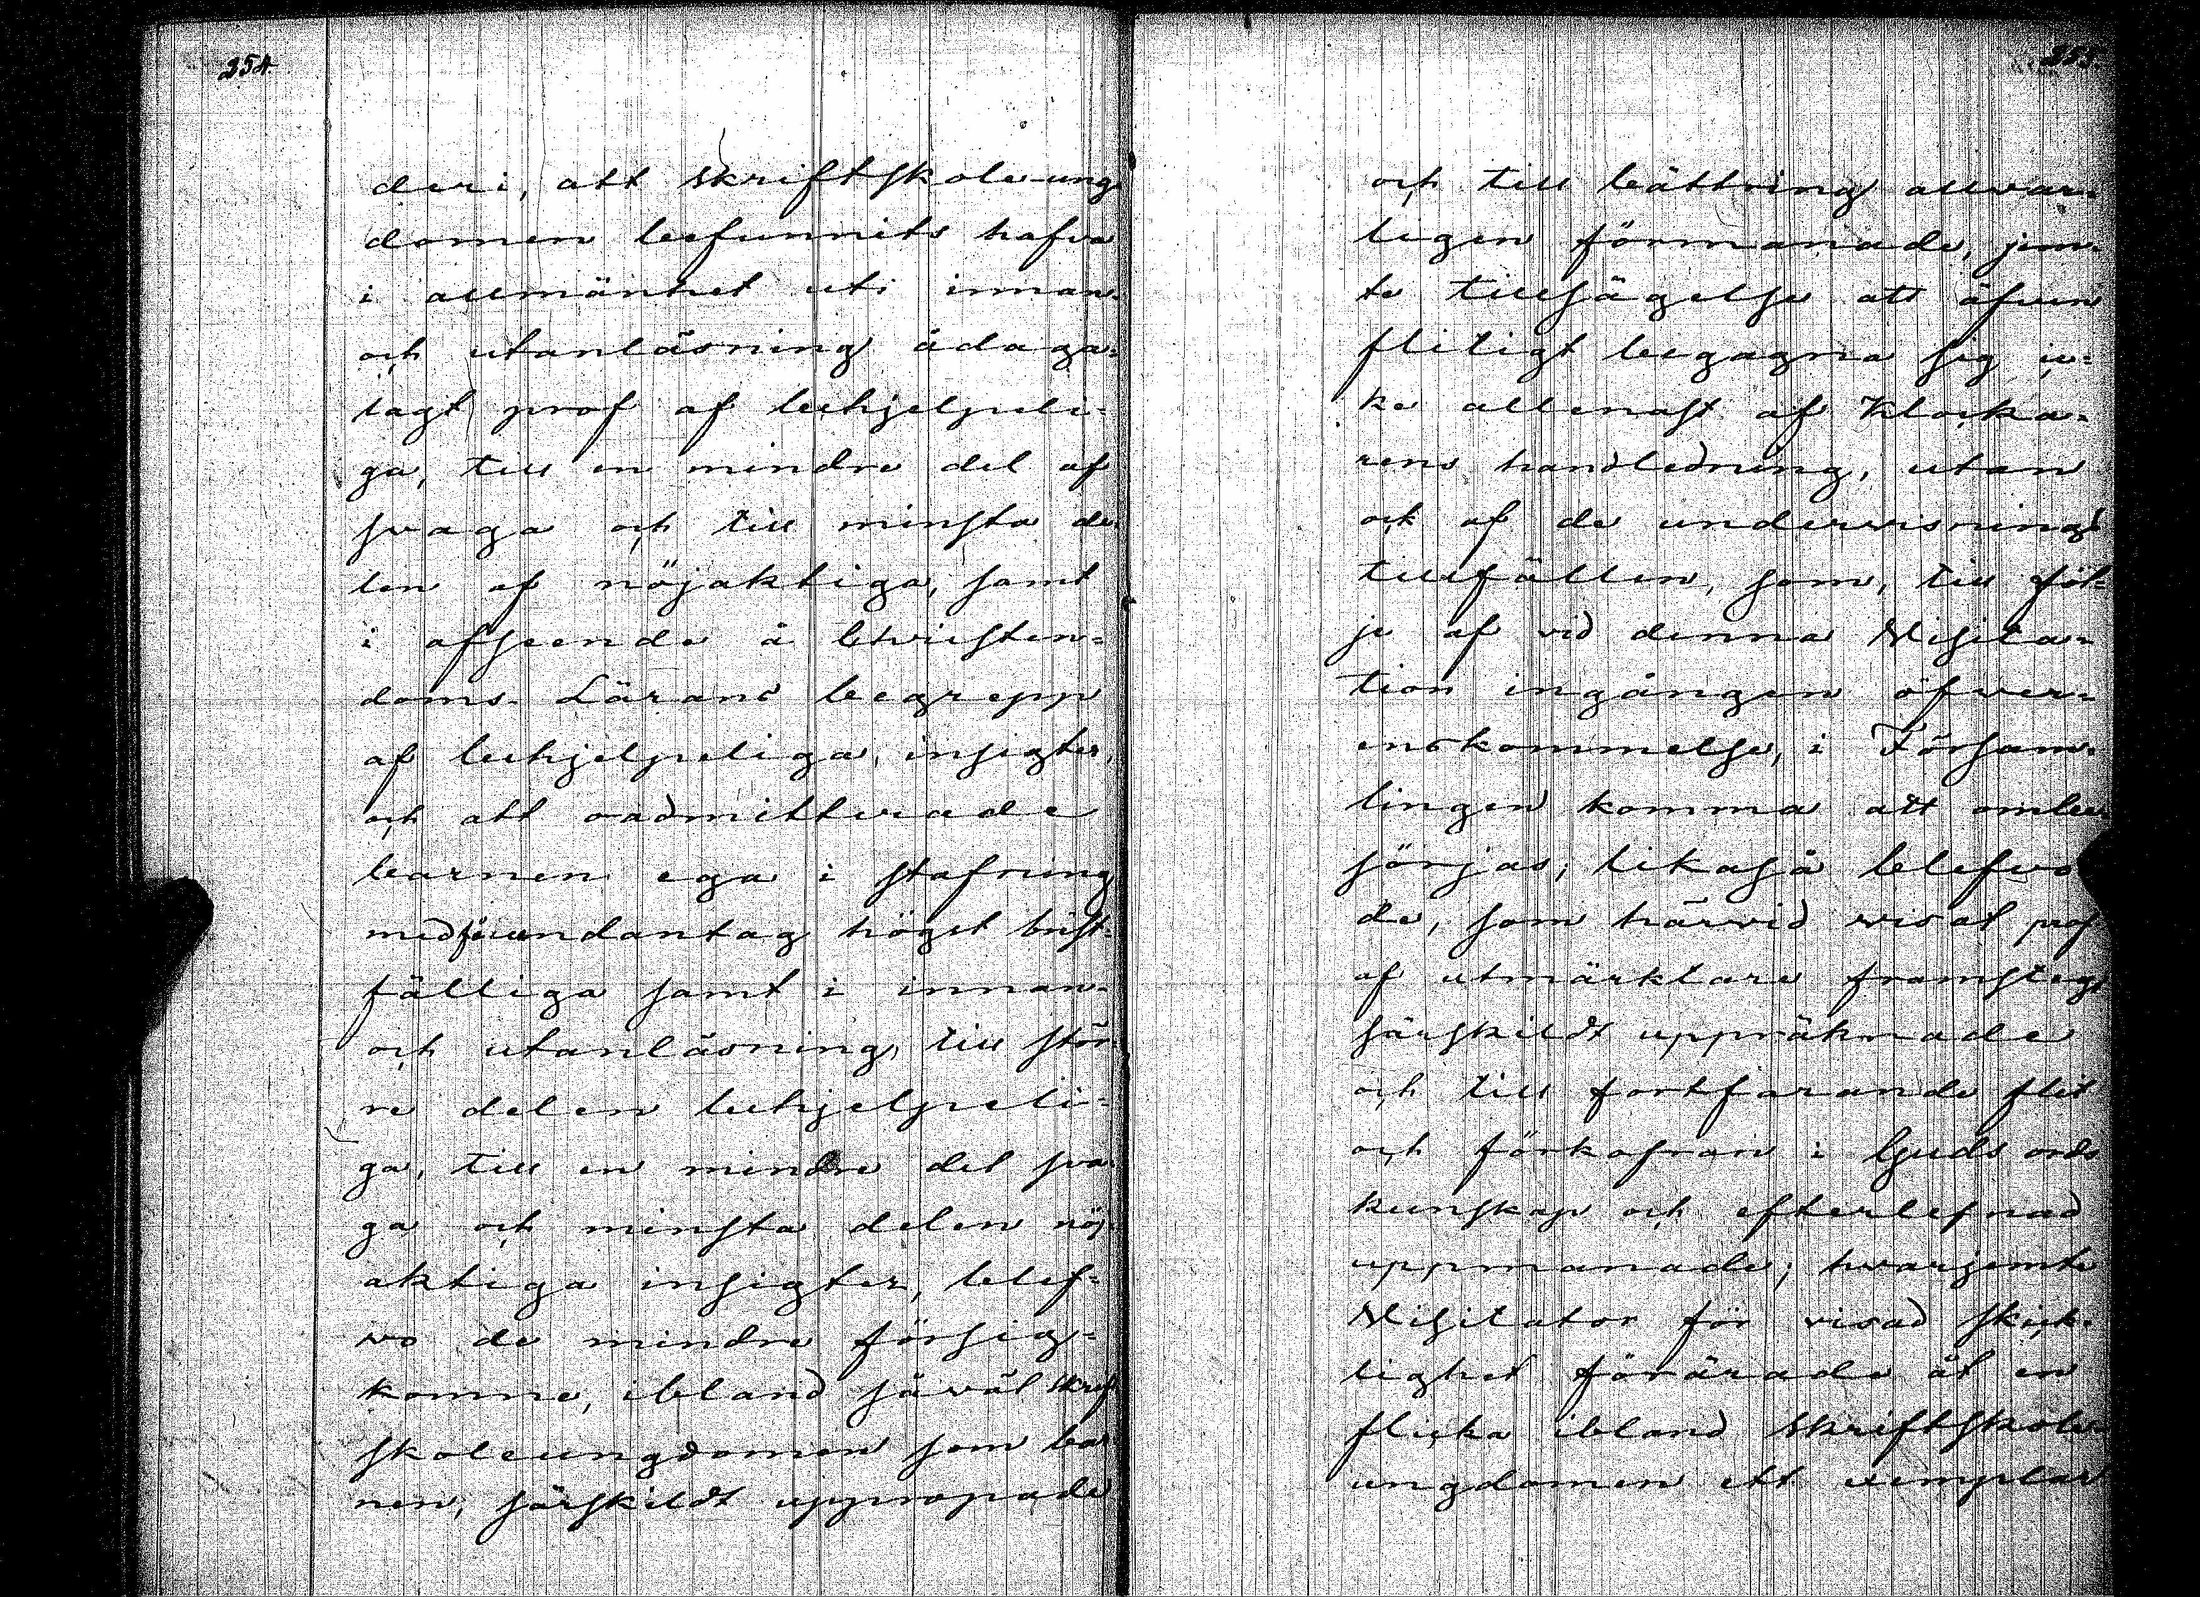 254
deri, att skriftskole-ung
domen befunnits hafva
i allmänhet uti innan-
och utanläsning ådaga-
lagt prof af behjelpeli-
ga, till en mindre del af
svaga och till minsta de-
len af nöjaktiga, samt
i afseende å Christen-
doms-Lärans begrepp
af behjelpeliga insigter,
och att oadmitterade
barnen ega i stafning
med undantag högst brist-
fälliga samt i innan-
och utanläsning, till stör-
re delen behjelpeli-
ga, till en mindre del sva-
ga och minsta delen nöj-
aktiga insigter, blef-
vo de mindre försig-
komne, ibland såväl skrift
skoleungdomen som bar
nen, särskildt uppropade
255.
och till bättring allvar-
ligen förmanade, jem-
te tillsägelse att äfven
flitigt begagna sig ic-
ke allenast af Klocka-
rens handledning, utan
ock af de undervisnings
tillfällen, som, till föl-
je af vid denna Visita-
tion ingången öfver-
enskommelse, i Försam-
lingen komma att ombe-
sörjas; likaså blefvo
de, som härvid visat prof
af utmärktare framsteg,
särskildt uppräknade
och till fortfarande flit
och förkofran i Guds ords
kunskap och efterlefnad
uppmanade; hvarjemte
Visitator för visad skick-
lighet förärade åt en
flicka ibland skriftskole-
ungdomen ett exemplar